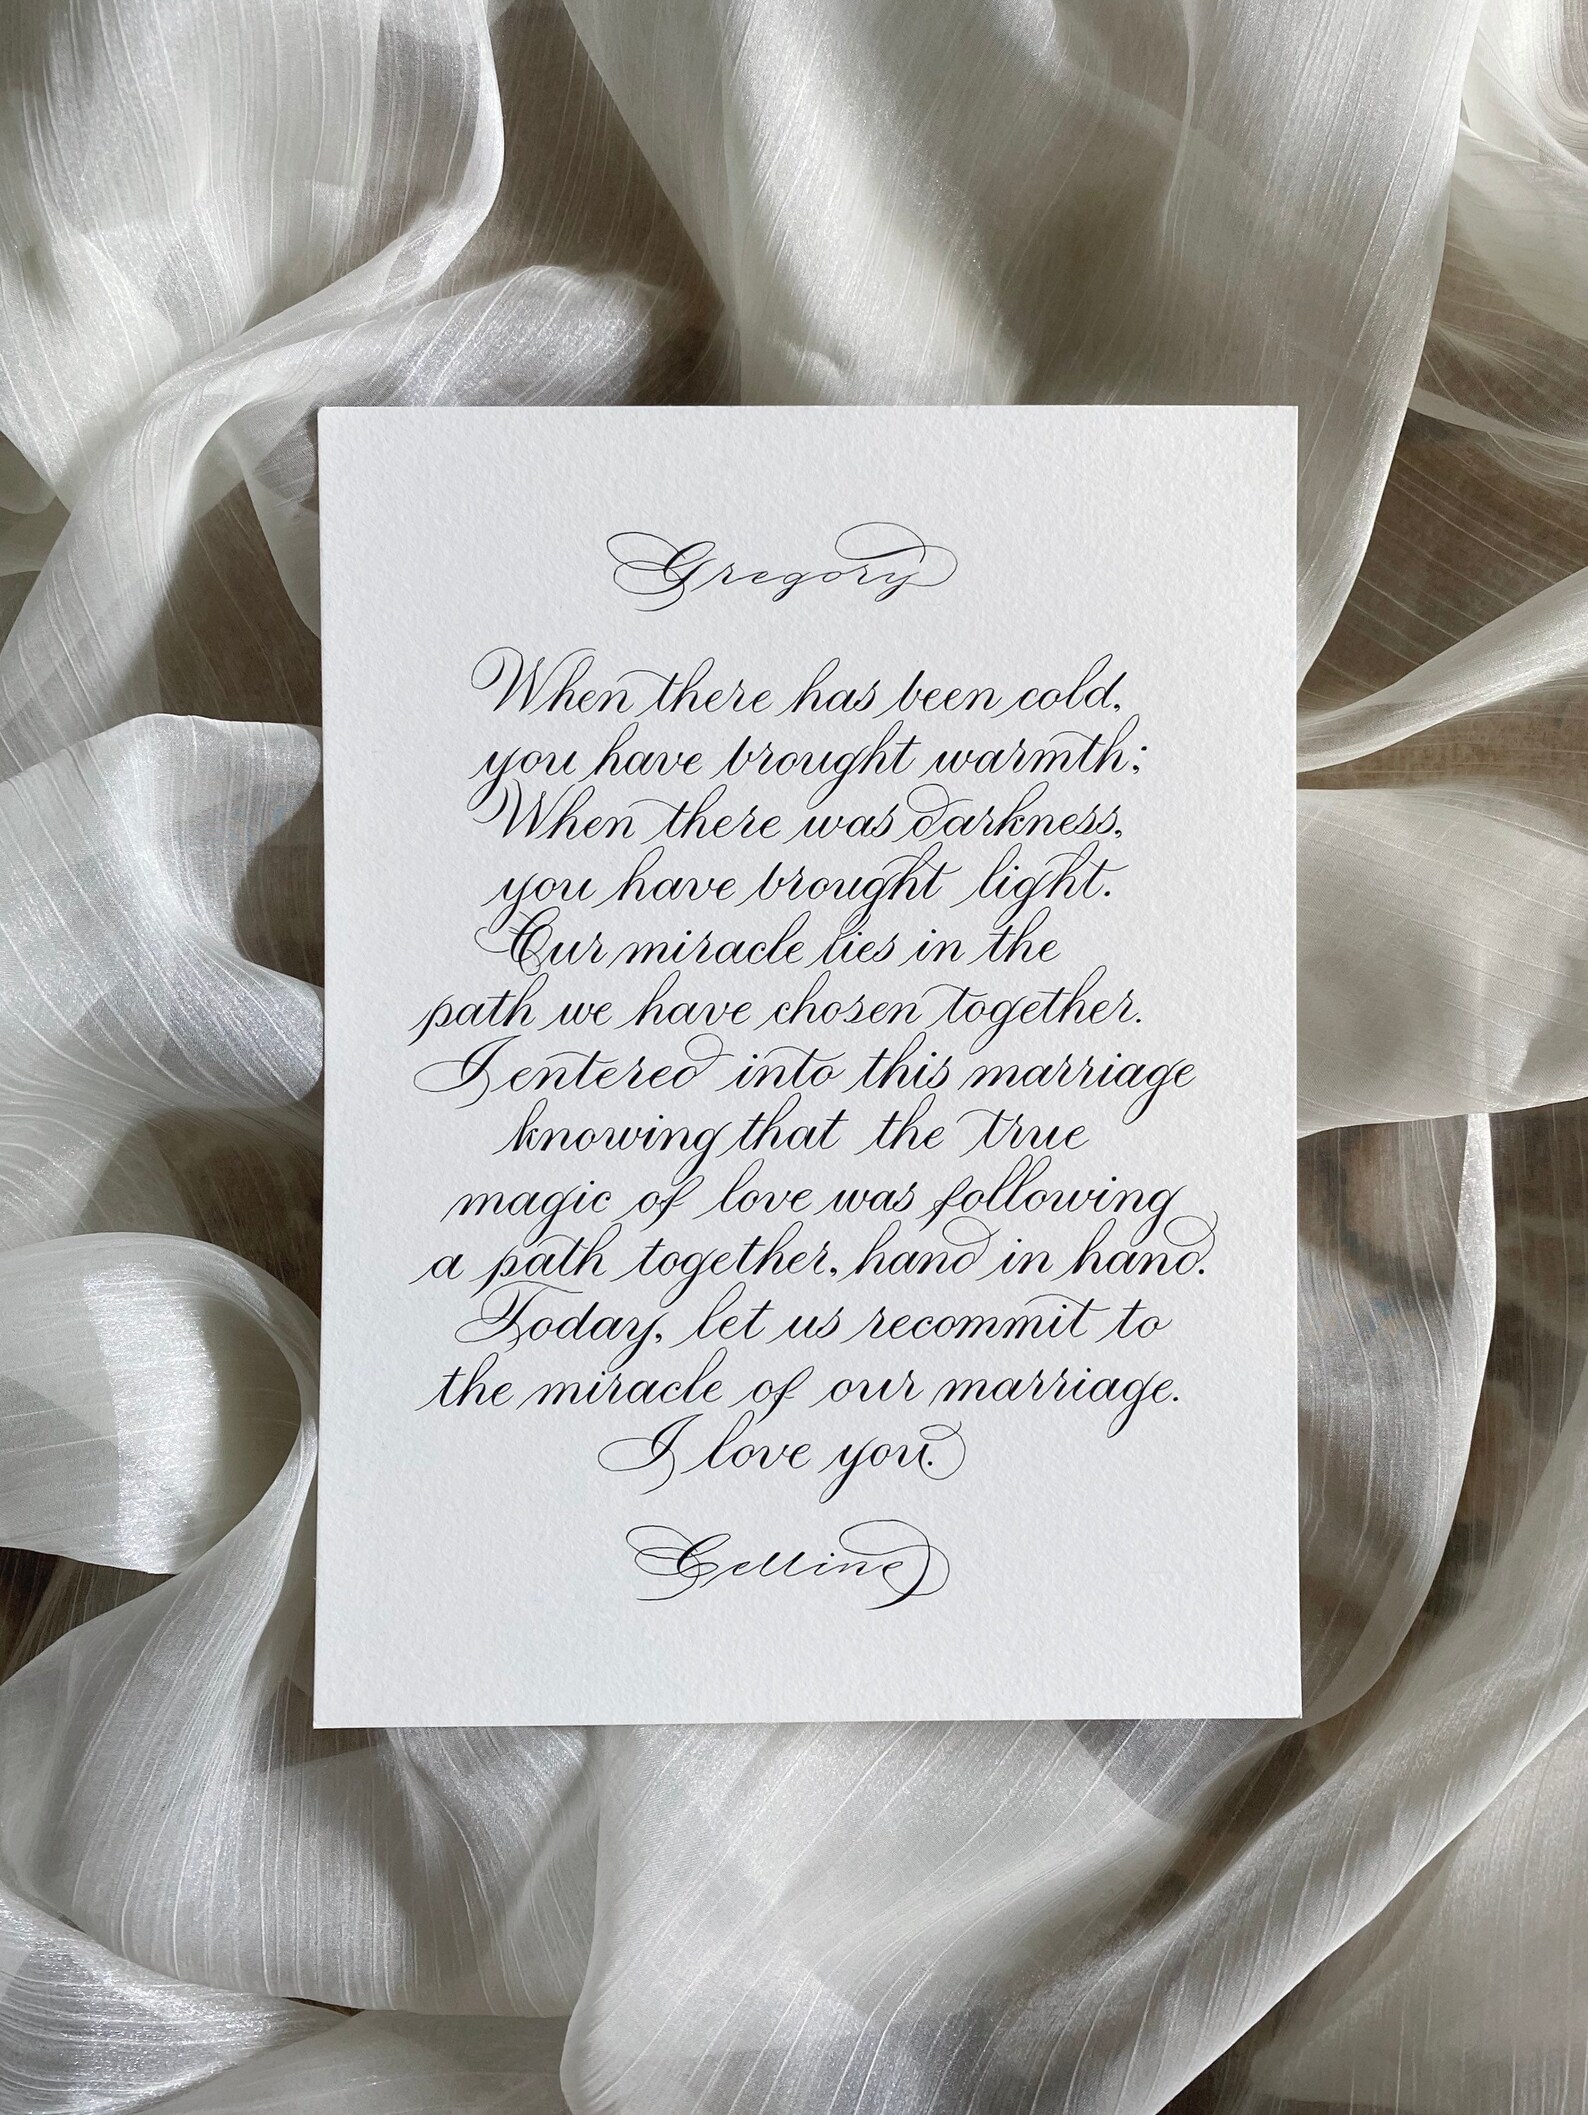 Gregory
When there has been cold,
you have brought warmth;
When there was darkness,
you have brought light.
Our miracle lies in the
path we have chosen together.
I entered into this marriage
knowing that the true
magic of love was following
a path together, hand in hand.
Today, let us recommit to
the miracle of our marriage.
I love you.
Celline